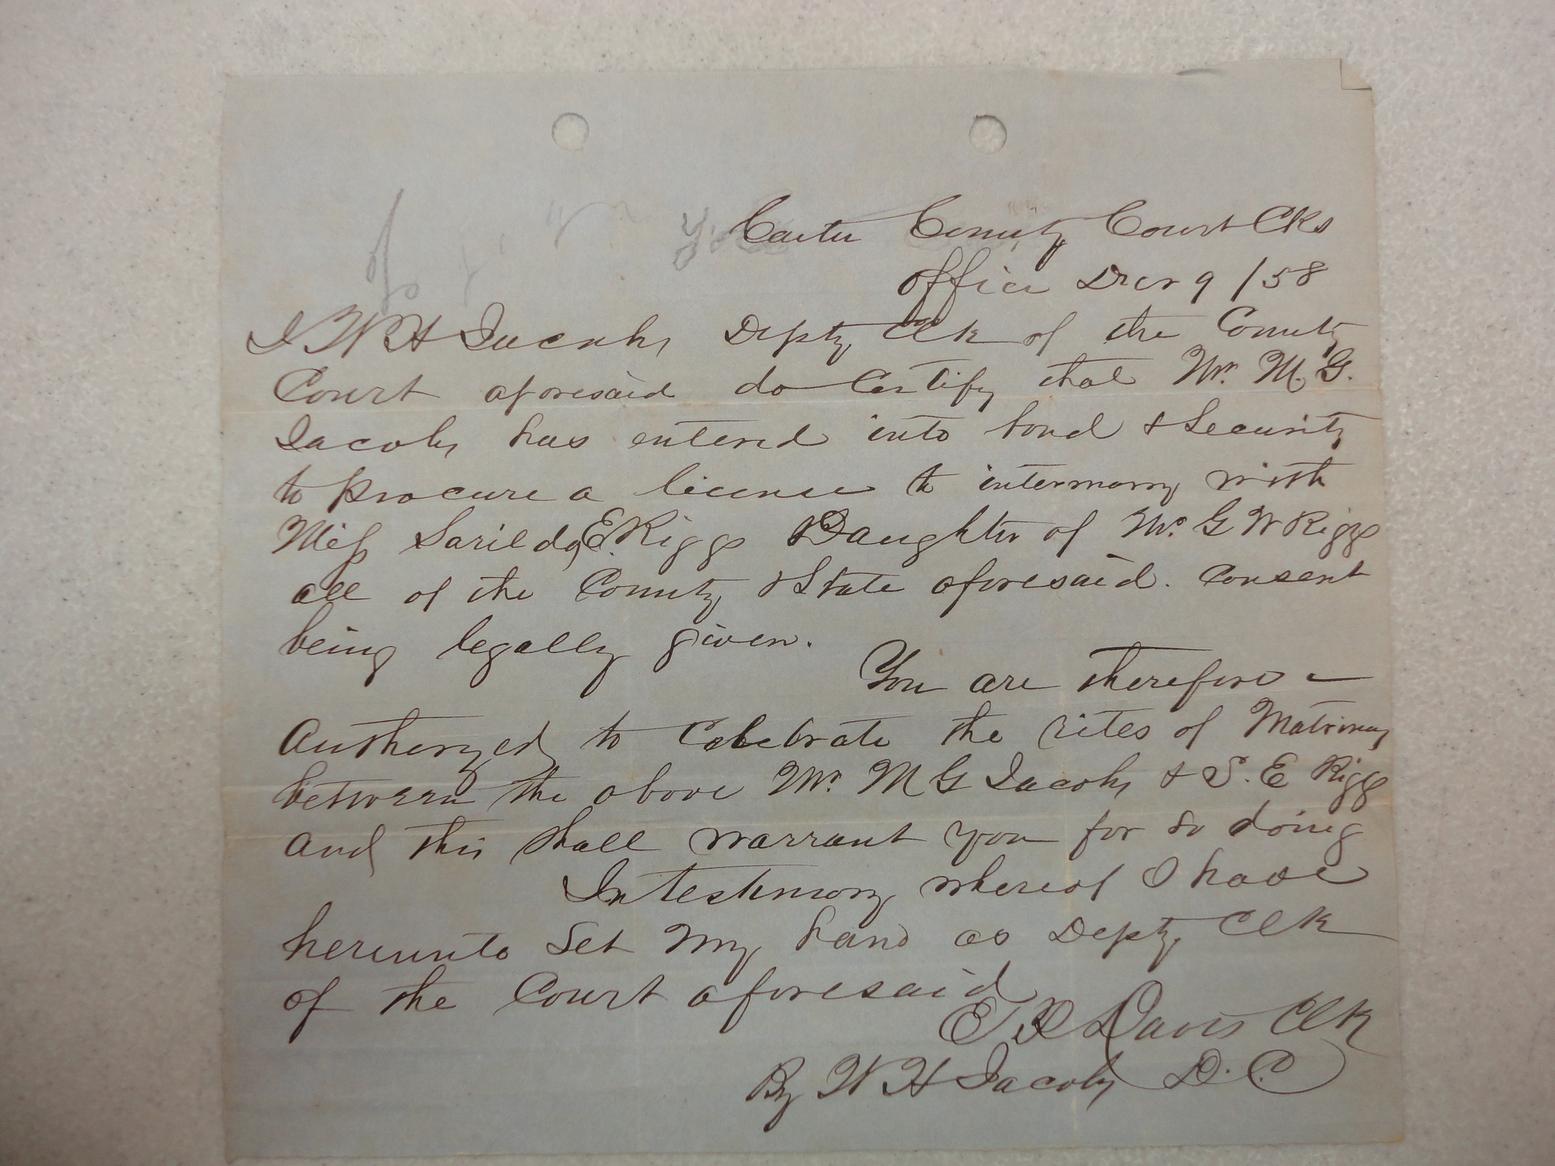 Carter County Court Clks
office Decr 9 /58
I W H Jacobs Depty Clk of the County
Court aforesaid do Certify that Mr. M. G.
Jacobs has entered into bond & Security
to procure a license to intermarry with
Miss Sarilda E. Riggs Daughter of Mr. G W Riggs
all of the County & State aforesaid. Consent
being legally given.
You are therefore
Authorized to Celebrate the rites of Matrimony
between the above Mr. M G Jacobs & S. E Riggs
and this shall warrant you for so doing
In testimony whereof I have
hereunto Set My hand as Depty Clk
of the Court aforesaid
Davis Clk
By W H Jacobs D. C